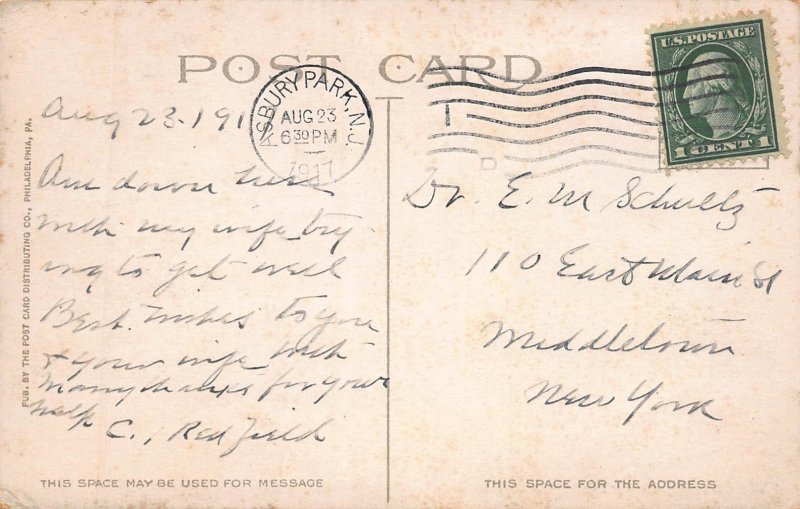 POST CARD
U.S. POSTAGE
1 CENT 1
ASBURY PARK, N.J.
AUG 23
6 30 PM
1917
Aug 23 - 191
Am down here
with my wife try
ing to get well
Best wishes to you
& your wife with
many thanks for your
help
C., Redfield
Dr. E. M Schultz
110 East Main St
Middletown
New York
PUB. BY THE POST CARD DISTRIBUTING CO., PHILADELPHIA, PA.
THIS SPACE MAY BE USED FOR MESSAGE
THIS SPACE FOR THE ADDRESS